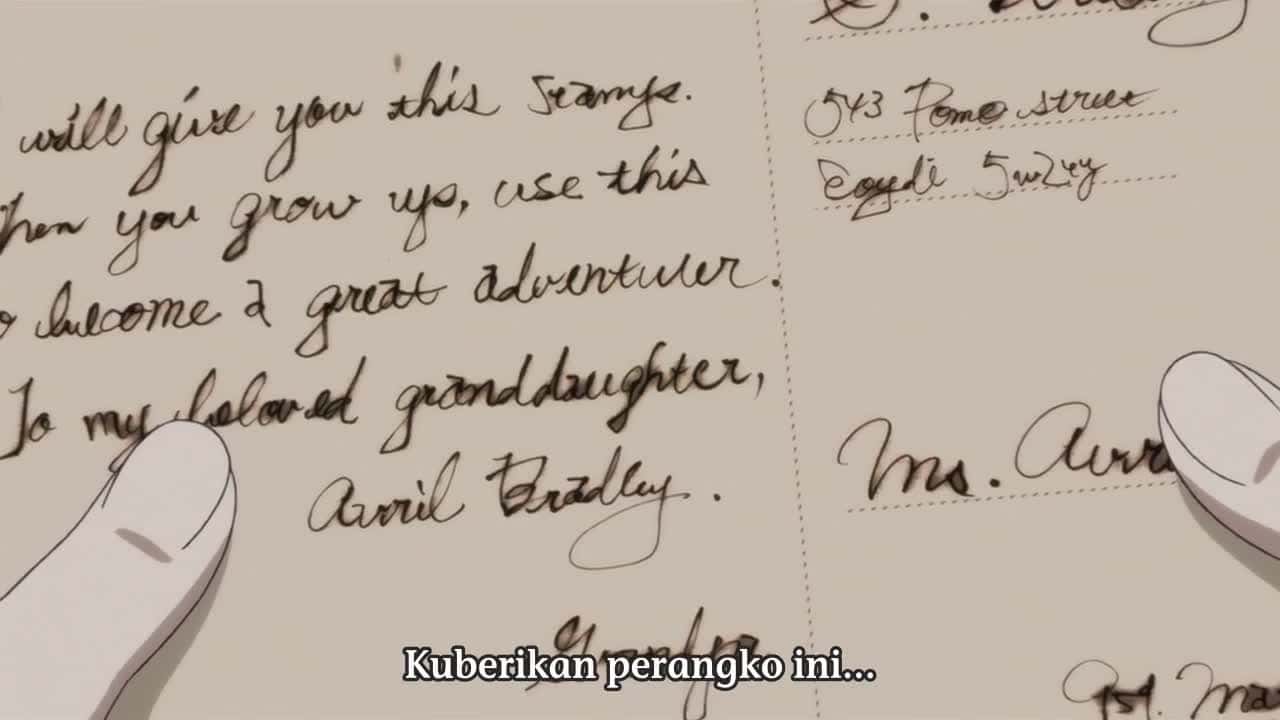 will give you this stamp.
when you grow up, use this
to become a great adventurer.
To my beloved granddaughter,
Avril Bradley.
Grandpa
543 Pomo street
Ms. Avr
Kuberikan perangko ini...